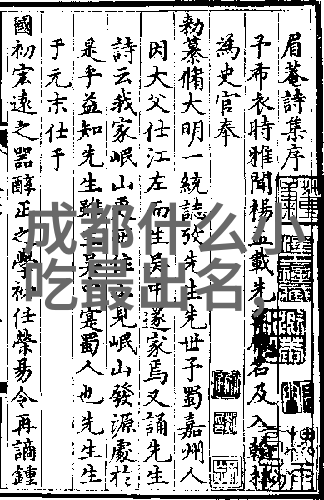 眉菴詩集序
予布衣時雅聞楊孟載先生名及入翰林
為史官奉
勑纂脩大明一統誌攷先生先世予蜀嘉州人
因大父仕江左而生吳中遂家焉又誦先生
詩云我家岷山更西住見岷山發源處於
是乎益知先生雖生吳中寔蜀人也先生生
于元末仕于
國初宏遠之器醇正之學初任滎昜令再謫鍾
成都什么小
吃最出名